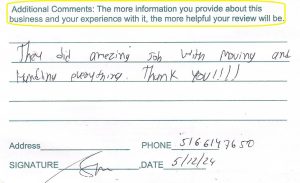 Additional Comments: The more information you provide about this
business and your experience with it, the more helpful your review will be.
They did amezing Job with Moving and
Hendling everything. Thank you!!!!
Address
PHONE 5166147650
SIGNATURE
DATE 5/12/24